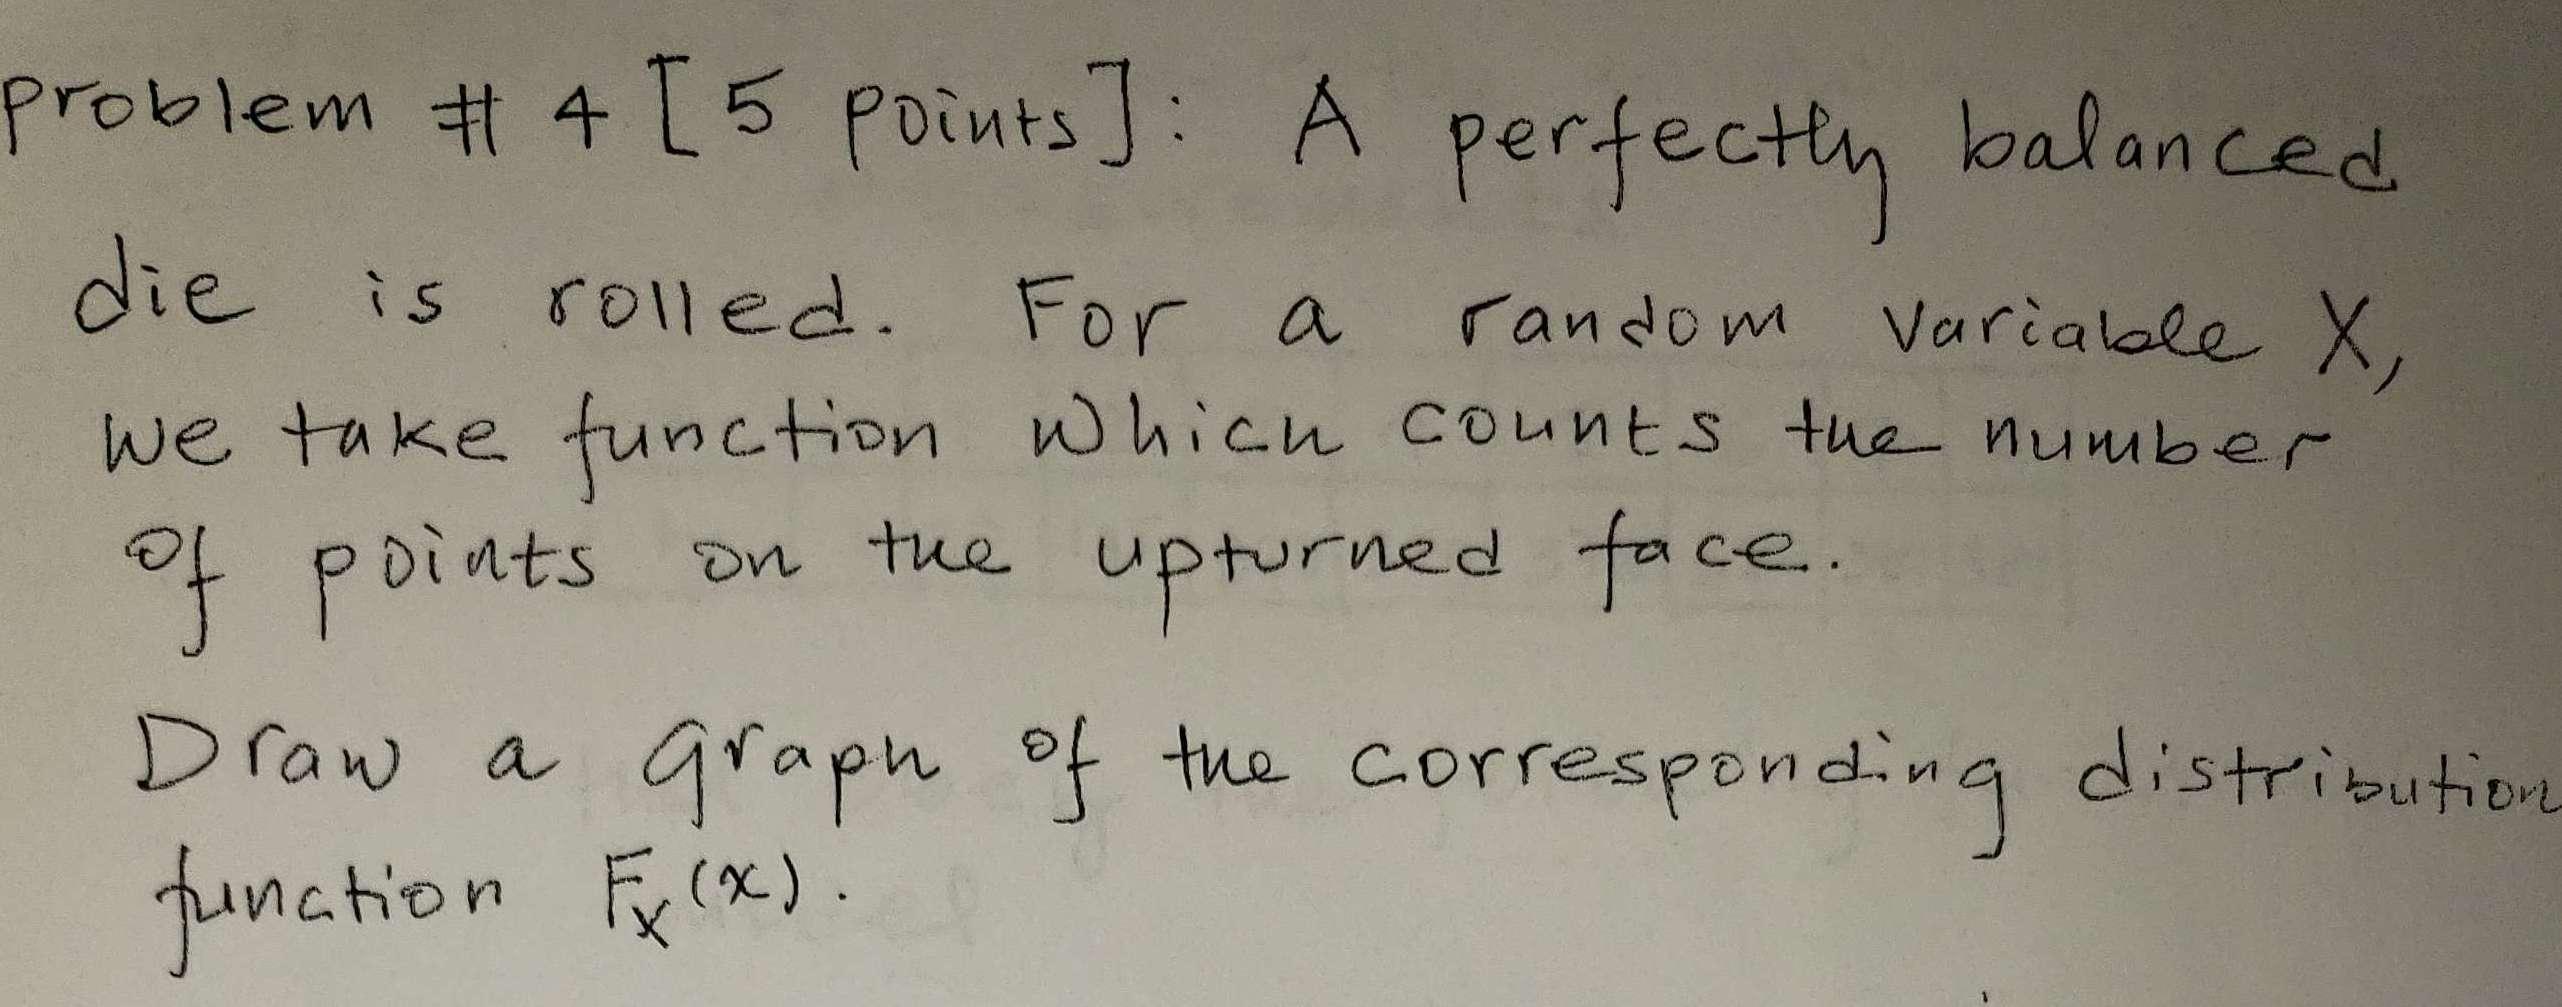 Problem # 4 [5 points]: A perfectly balanced
die is rolled. For a random variable X,
we take function which counts the number
of points on the upturned face.
Draw a graph of the corresponding distribution
function Fx(x).